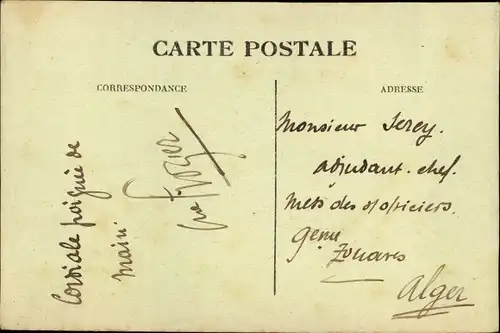 CARTE POSTALE
CORRESPONDANCE
Cordiale poignée de
main
ADRESSE
Monsieur Serey.
adjudant. chef.
Mess des s/officiers.
9eme
Zouaves
Alger